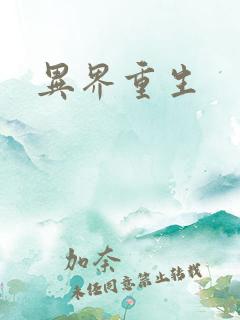 異界重生
加奈
未經同意禁止轉載